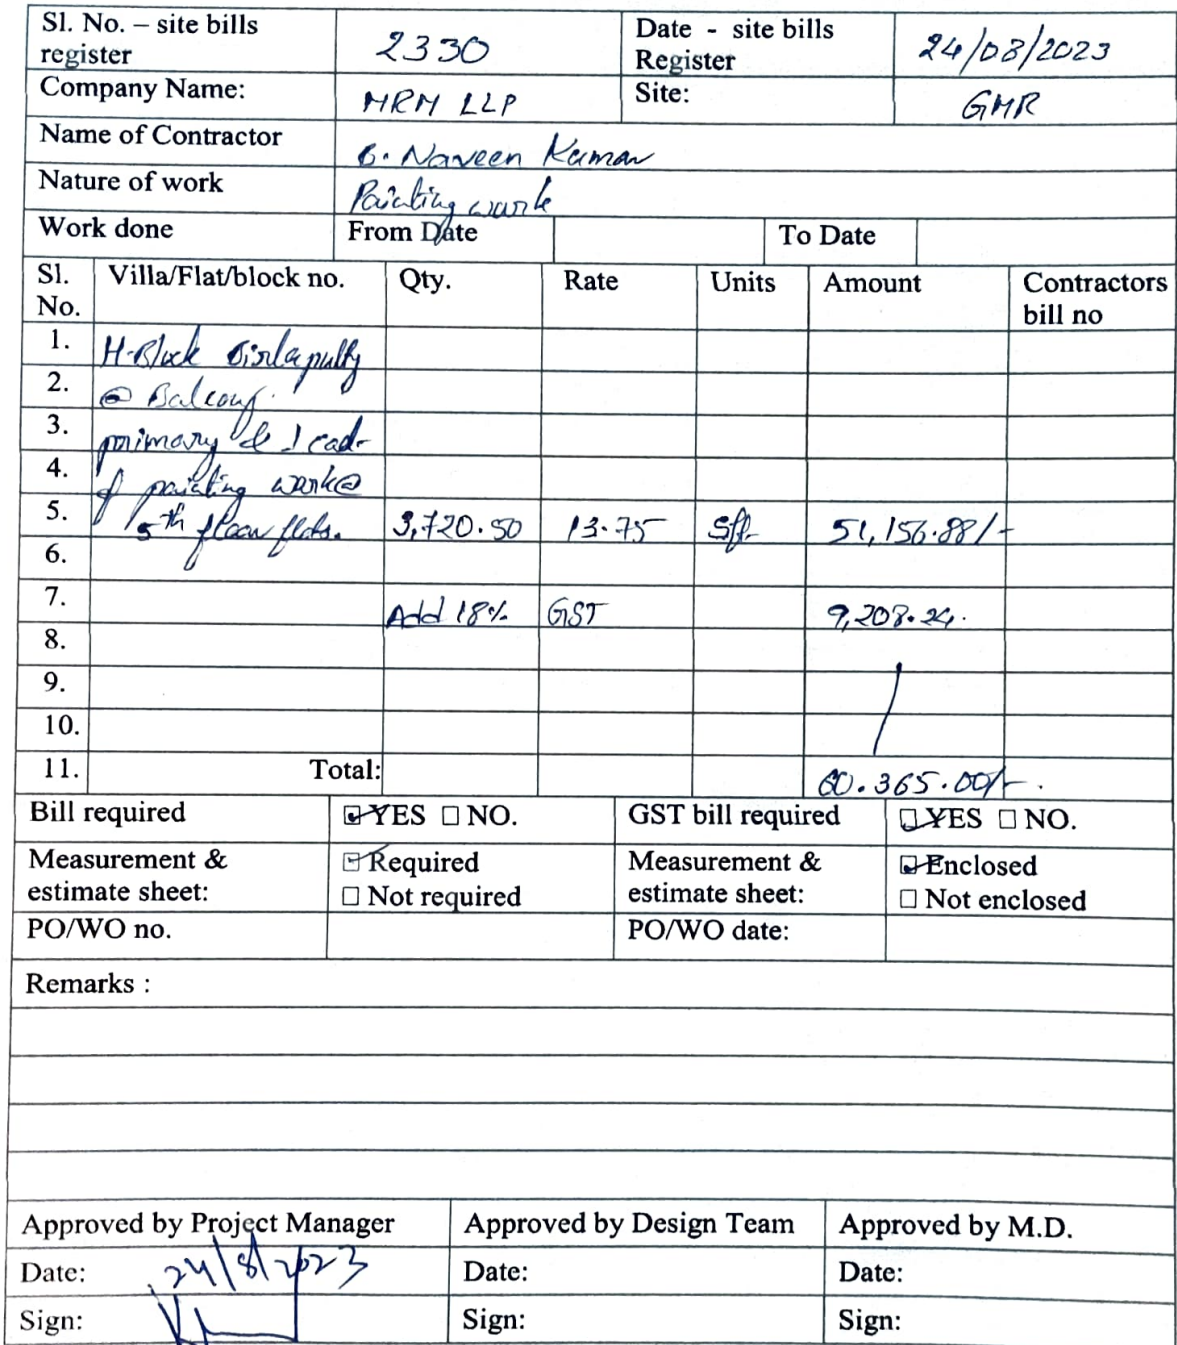 Sl. No. – site bills register 2330 Date - site bills Register 24/08/2023
Company Name: MRM LLP Site: GMR
Name of Contractor B. Naveen Kumar
Nature of work Painting work
Work done From Date To Date
Sl. No. Villa/Flat/block no. Qty. Rate Units Amount Contractors bill no
1. H-Block
2. @ Balcony.
3. primary & 1
4. of painting work@
5. 5th floor flats. 3,720.50 13.75 sft 51,156.88/-
6.
7. Add 18% GST 9,208.24.
8.
9.
10.
11. Total: 60.365.00/-.
Bill required YES NO. GST bill required YES NO.
Measurement & estimate sheet: Required Not required Measurement & estimate sheet: Enclosed Not enclosed
PO/WO no. PO/WO date:
Remarks :
Approved by Project Manager Approved by Design Team Approved by M.D.
Date: 24/8/2023 Date: Date:
Sign: Sign: Sign: